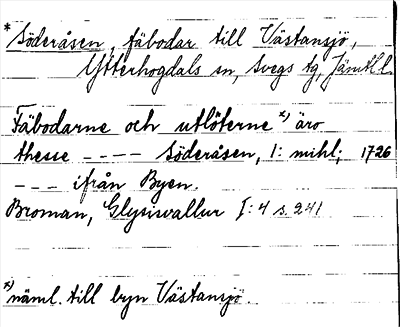 * Söderåsen, fäbodar till Västansjö,
Ytterhogdals sn, Svegs tg, Jämtl. l.
Fäbodarne och utlöterne *) äro
thesse ---- Söderåsen, 1: mihl; 1726
--- ifrån Byen.
Broman, Glysisvallur I: 4 s. 241
*) näml. till byn Västansjö.